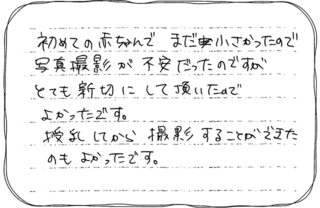 初めての赤ちゃんで まだ小さかったので
写真撮影が不安だったのですが
とても新切にして頂いたので
よかったです。
授乳してから撮影することができた
のもよかったです。